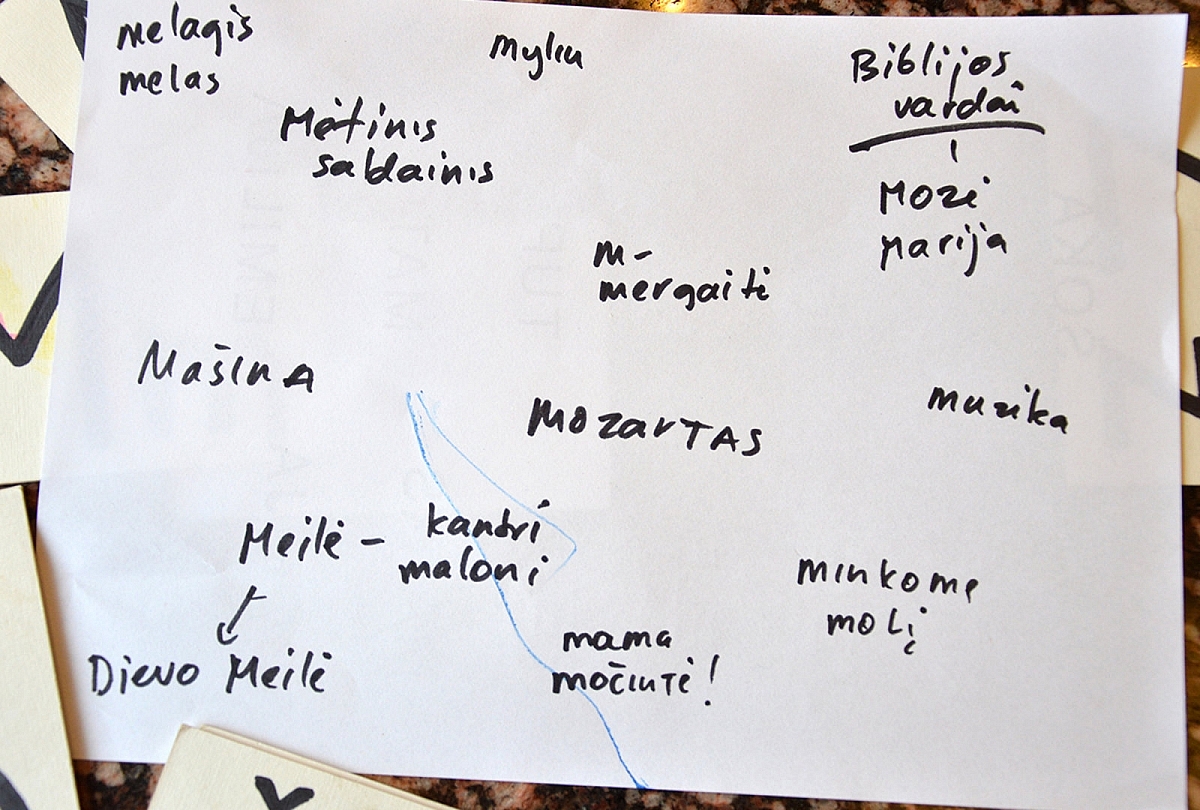 melagis
melas
myliu
Biblijos
vardai
Mėtinis
saldainis
Mozė
Marija
m-
mergaitė
Mašina
Mozartas
muzika
Meilė - kantri
maloni
minkome
molį
Dievo Meilė
mama
močiutė!